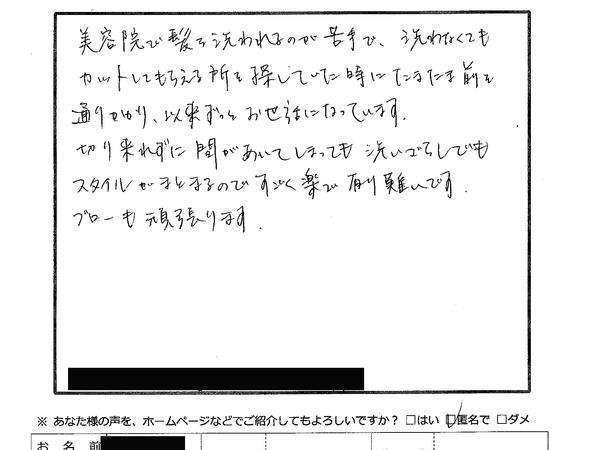 美容院で髪を洗われるのが苦手で、洗わなくても
カットしてもらえる所を探していた時にたまたま前を
通りかかり、以来ずっとお世話になっています。
切り来れずに間があいてしまっても洗いざらしでも
スタイルがまとまるのですごく楽で有り難いです。
ブローも頑張ります。
※ あなた様の声を、ホームページなどでご紹介してもよろしいですか？ □はい □匿名で □ダメ
お 名 前